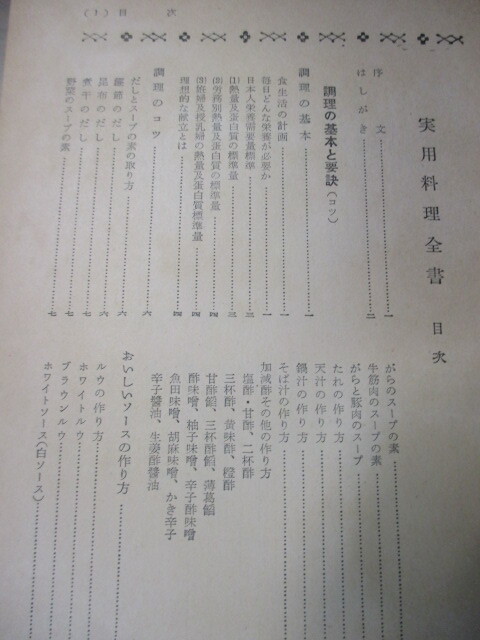 (1) 目次
実用料理全書 目次
序文……一
はしがき……二
調理の基本と要訣(コツ)
調理の基本……一
食生活の計画……一
毎日どんな栄養が必要か……一
日本人栄養需要量標準……三
(1)熱量及蛋白質の標準量……三
(2)労務別熱量及蛋白質の標準量……四
(3)妊婦及授乳婦の熱量及蛋白質標準量……四
理想的な献立とは……四
調理のコツ……六
だしとスープの素の取り方……六
鰹節のだし……六
昆布のだし……七
煮干のだし……七
野菜のスープの素……七
がらのスープの素
牛筋肉のスープの素
がらと豚肉のスープ
たれの作り方
天汁の作り方
鍋汁の作り方
そば汁の作り方
加減酢その他の作り方
塩酢・甘酢、二杯酢
三杯酢、黄味酢、橙酢
甘酢餡、三杯酢餡、薄葛餡
酢味噌、柚子味噌、辛子酢味噌
魚田味噌、胡麻味噌、かき辛子
辛子醬油、生姜酢醬油
おいしいソースの作り方
ルウの作り方
ホワイトルウ
ブラウンルウ
ホワイトソース(白ソース)